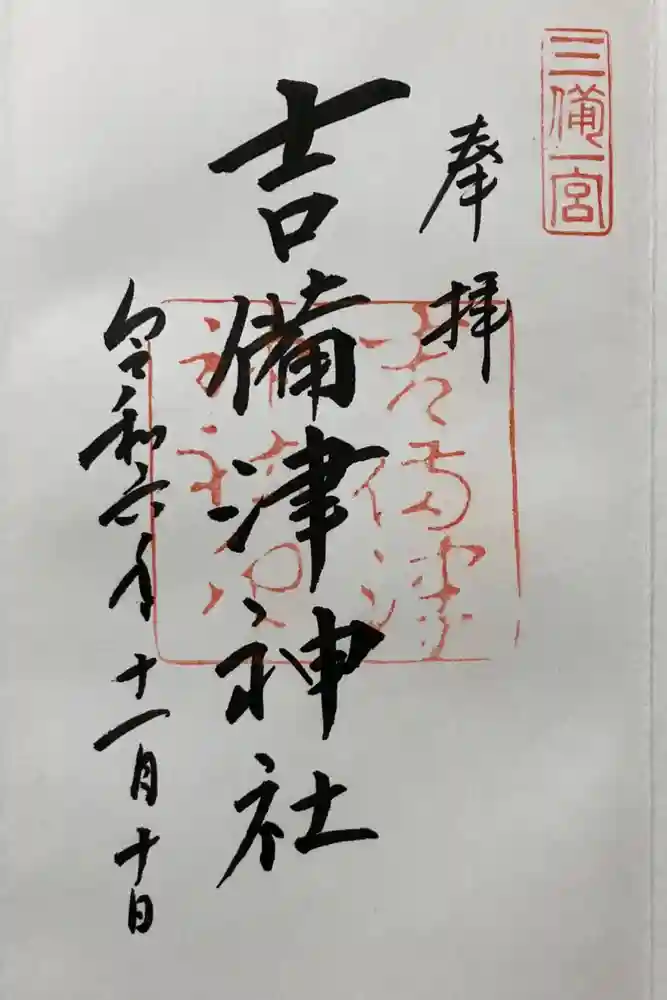 三備一宮
奉拝
吉備津神社
令和六年十一月十日
吉備津